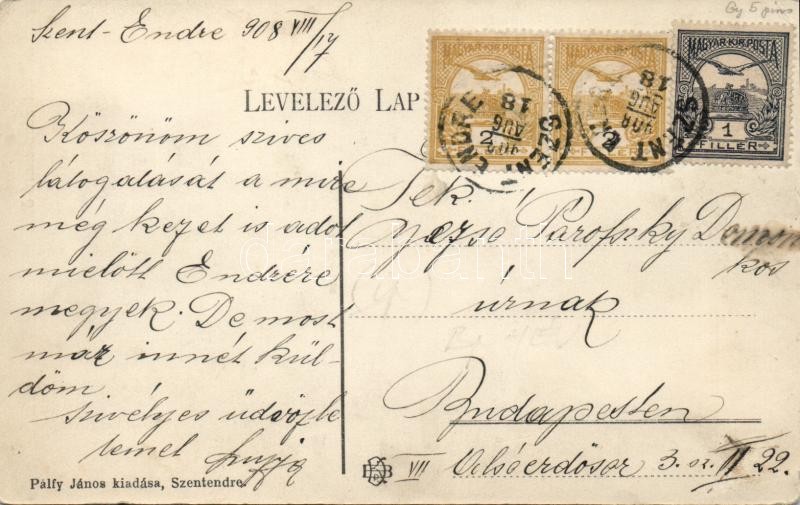 Gy 5 piros
Szent-Endre 908 VIII/17
LEVELEZŐ LAP
MAGYAR KIR. POSTA
2
FILLÉR
MAGYAR KIR. POSTA
FILLÉR
MAGYAR KIR. POSTA
1
FILLÉR
SZENT ENDRE
908
AUG
18
SZENT
908
AUG
18
Köszönöm szives
látogatását a mire
még kezet is adot
mielőtt Endrére
megyek. De most
már innét kül-
döm
szivélyes üdvözle
temet
Tek.
Parofszky Domon
kos
úrnak
Budapesten
VII Alsóerdősor 3. sz. II 22.
Pálfy János kiadása, Szentendre.
darabanth